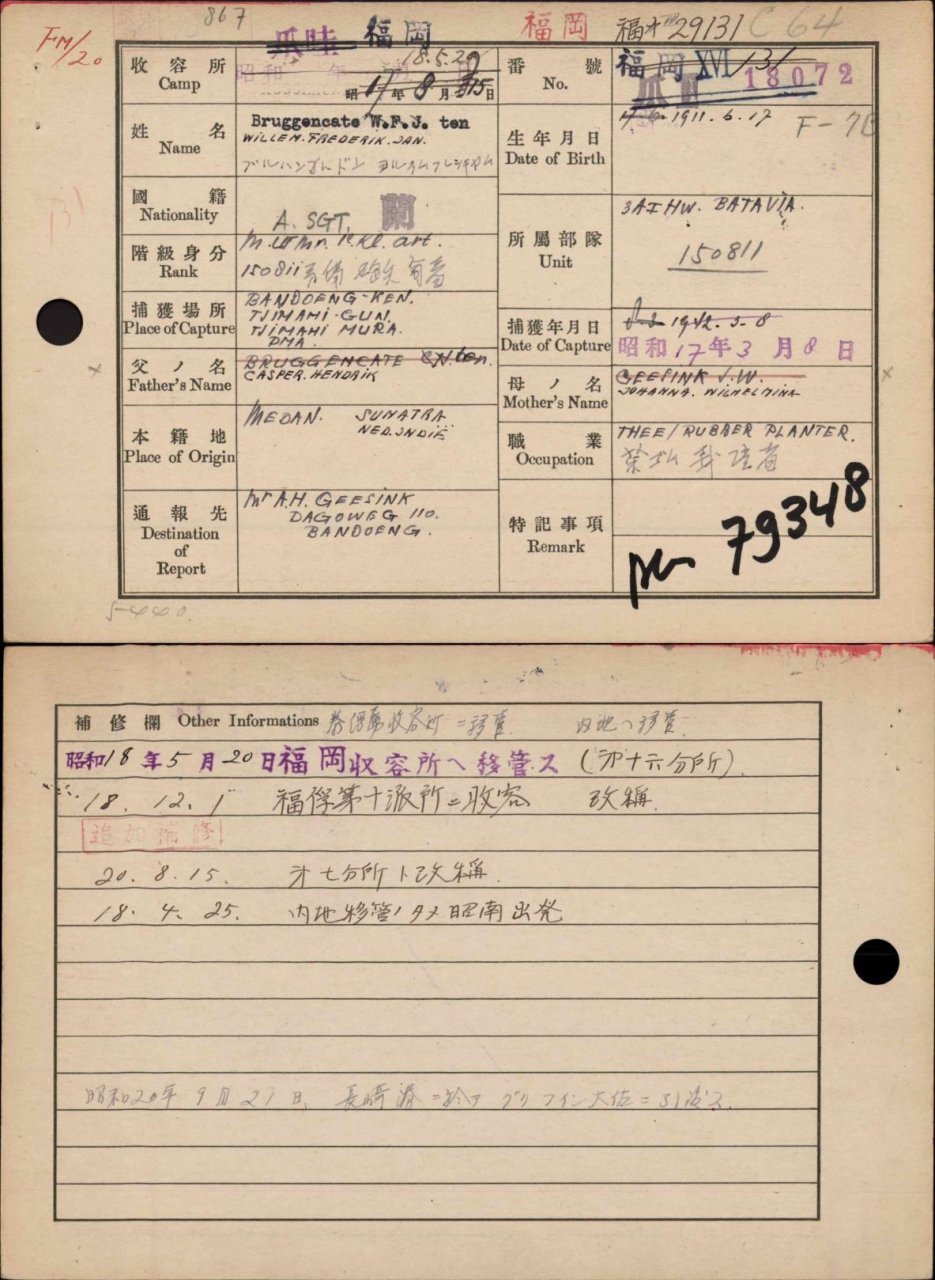 FM/20
867
爪哇 福岡
福岡 福オ 29131 C64
收容所
Camp
18.5.20
昭 17 年 8 月 15 日
番號
No.
福岡 XVI 131
18072
姓名
Name
Bruggencate W.F.J. ten
WILLEM. FREDERIK. JAN.
生年月日
Date of Birth
1911. 6. 17
F-7B
國籍
Nationality
A. SGT. 蘭
所屬部隊
Unit
3AIHW. BATAVIA.
150811
階級身分
Rank
150811
捕獲場所
Place of Capture
BANDOENG-KEN.
TJIMAHI-GUN.
TJIMAHI MURA.
DMA.
捕獲年月日
Date of Capture
1942. 3. 8
昭和 17 年 3 月 8 日
父ノ名
Father's Name
BRUGGENCATE C.H. ten.
CASPER. HENDRIK
母ノ名
Mother's Name
GEESINK J.W.
JOHANNA. WILHELMINA
本籍地
Place of Origin
MEDAN. SUNATRA
NED. INDIË
職業
Occupation
THEE/RUBBER PLANTER.
通報先
Destination of Report
Mr A.H. GEESINK
DAGOWEG 110.
BANDOENG.
特記事項
Remark
79348
5-440.
131
補修欄 Other Informations 內地ヘ移管
昭和 18 年 5 月 20 日 福岡収容所ヘ移管ス (第十六分所)
18. 12. 1 福俘第十派所ニ收容 改稱
追加補修
20. 8. 15. 第七分所ト改稱
18. 4. 25. 内地移管ノタメ昭南出発
昭和20年 9月21日 長崎港ニ於テ グリフイン大佐ニ引渡ス